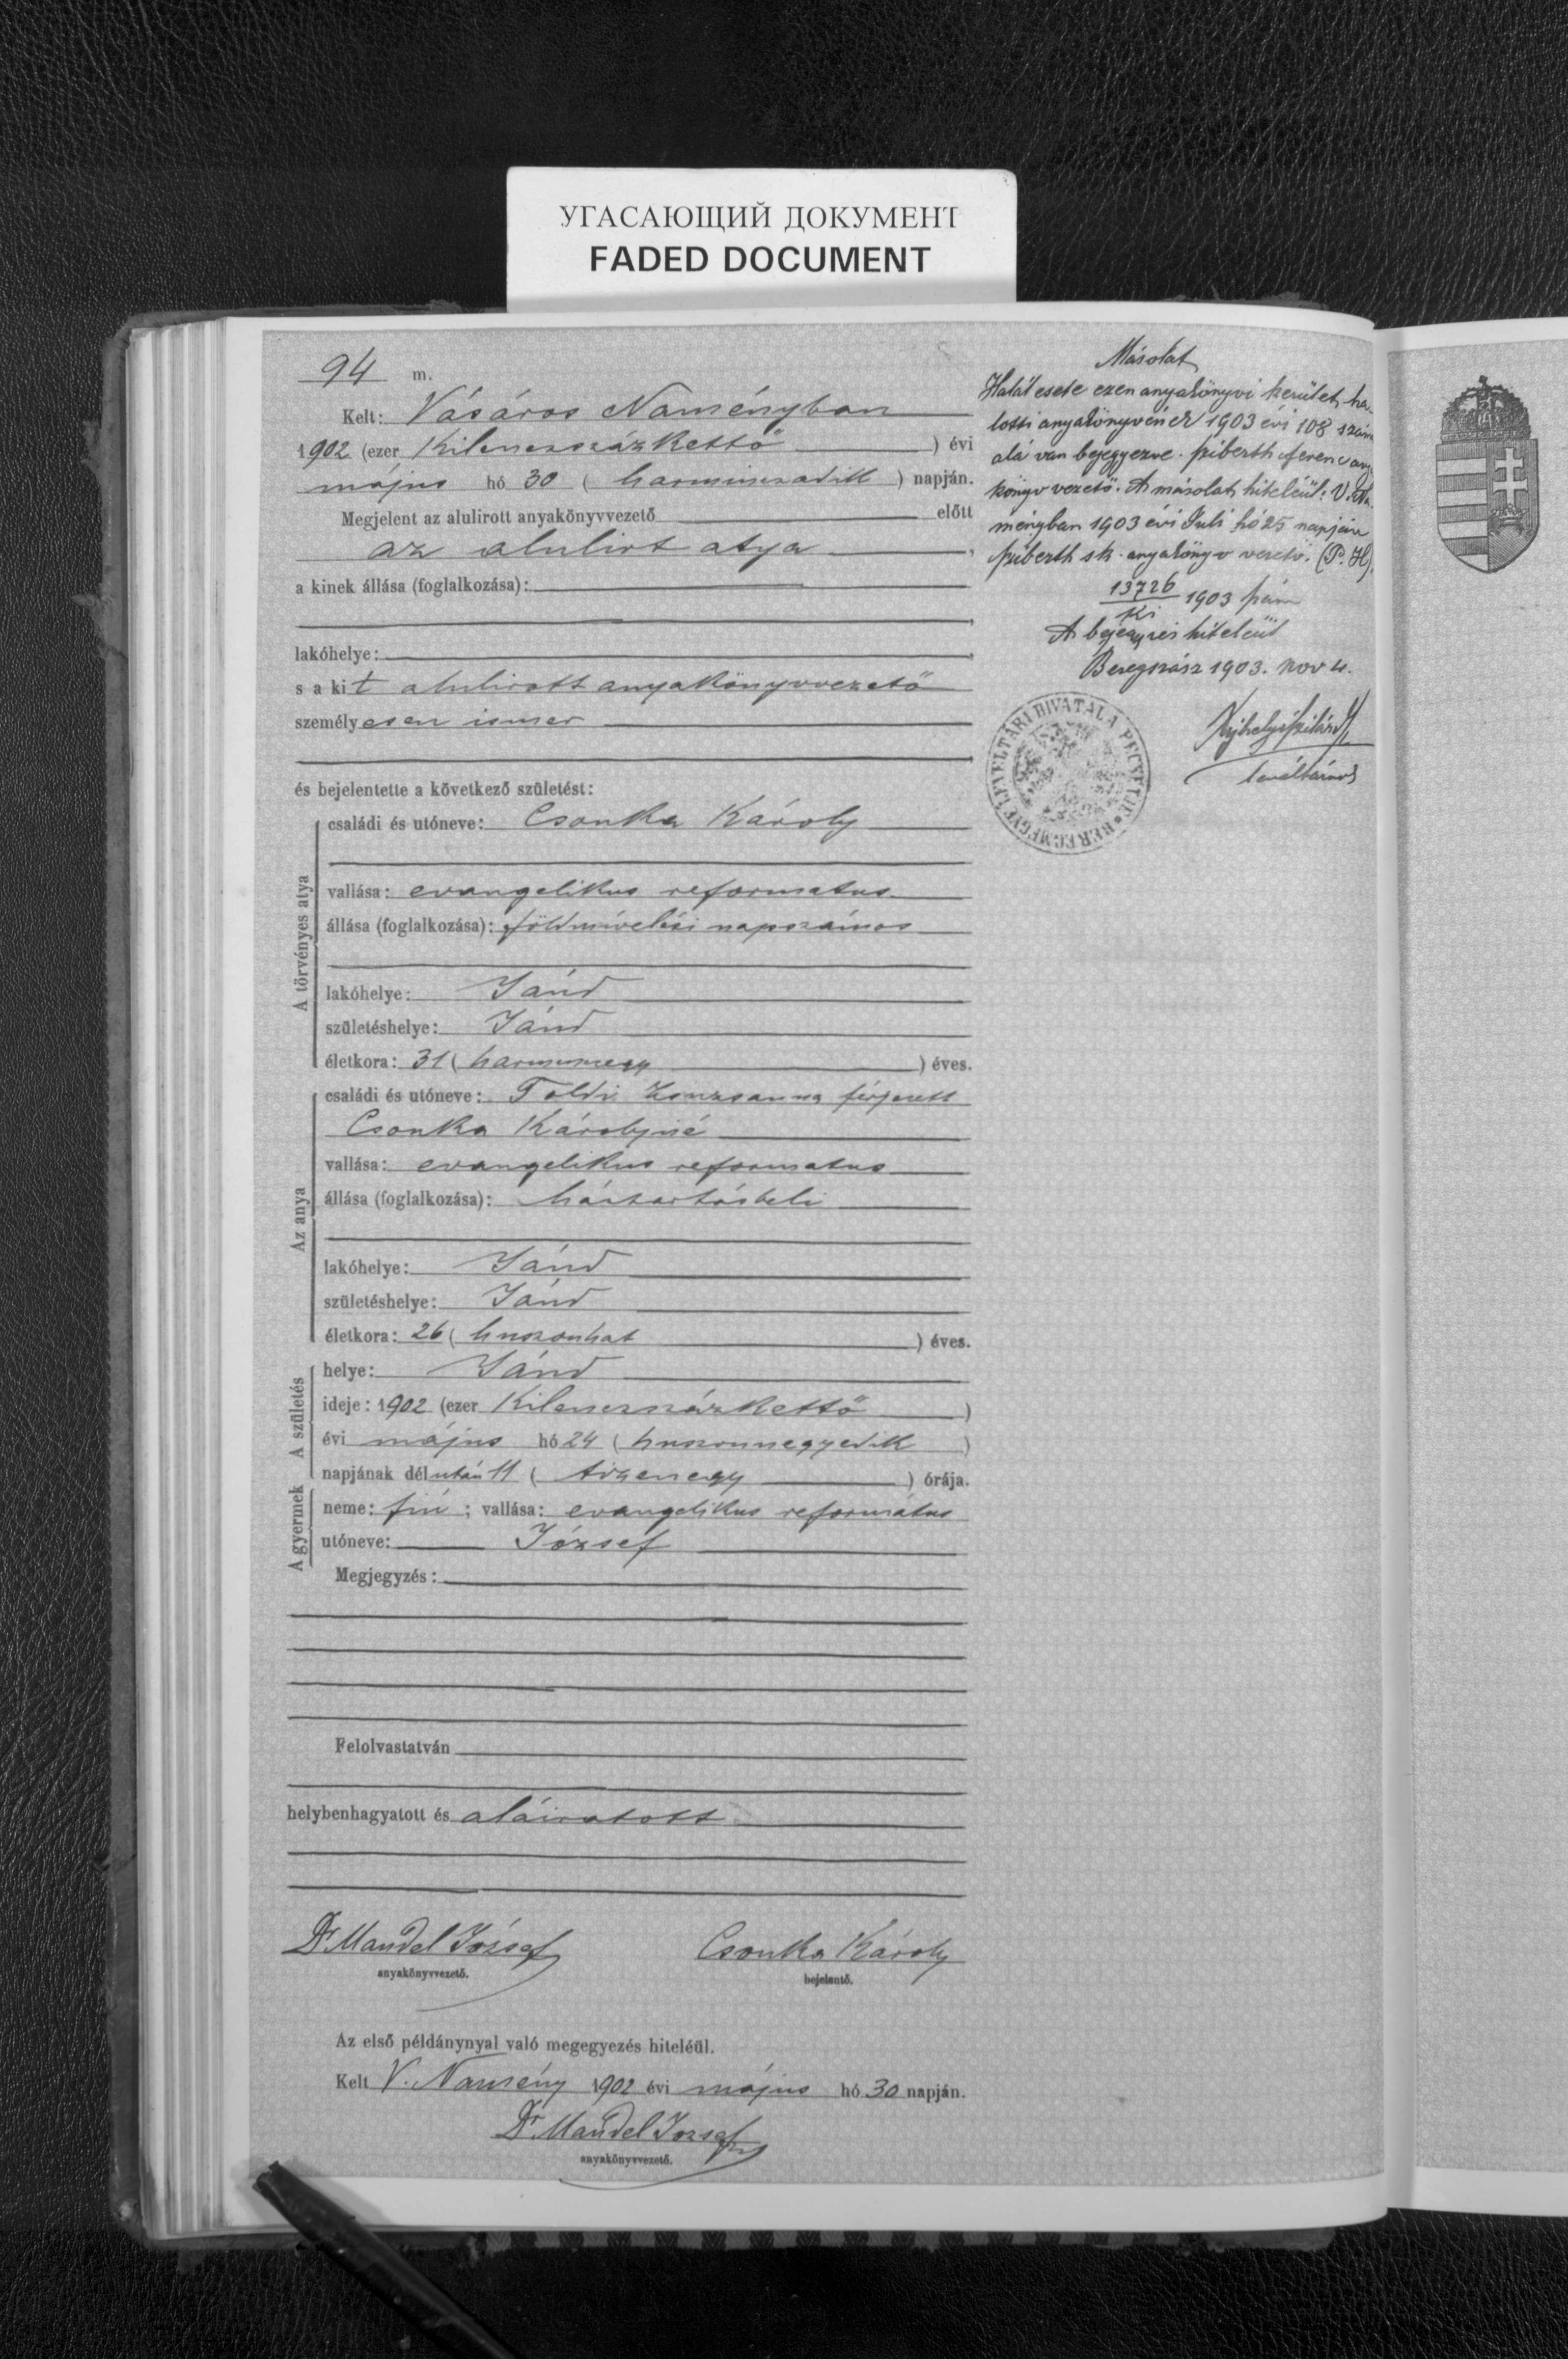 УГАСАЮЩИЙ ДОКУМЕНТ
FADED DOCUMENT
94 m.
Kelt: Vásáros Naményban
1902 (ezer kilenczszázkettő) évi
május hó 30 (harminczadik) napján.
Megjelent az alulirott anyakönyvvezető előtt
az alulirt atya,
a kinek állása (foglalkozása):
lakóhelye:
s a kit alulirott anyakönyvvezető
személyesen ismer
és bejelentette a következő születést:
A törvényes atya
családi és utóneve: Csonka Károly
vallása: evangelikus reformatus
állása (foglalkozása): földmivelési napszámos
lakóhelye: Jánd
születéshelye: Jánd
életkora: 31 (harminczegy) éves.
Az anya
családi és utóneve: Toldi Zsuzsanna férjezett
Csonka Károlyné
vallása: evangelikus reformatus
állása (foglalkozása): háztartásbeli
lakóhelye: Jánd
születéshelye: Jánd
életkora: 26 (huszonhat) éves.
A születés
helye: Jánd
ideje: 1902 (ezer kilenczszázkettő)
évi május hó 24 (huszonnegyedik)
napjának délután 11 (tizenegy) órája.
A gyermek
neme: fiú; vallása: evangelikus református
utóneve: József
Megjegyzés:
Felolvastatván
helybenhagyatott és aláiratott
Dr Mandel József
anyakönyvvezető.
Csonka Károly
bejelentő.
Az első példánynyal való megegyezés hiteléül.
Kelt V. Namény 1902 évi május hó 30 napján.
Dr Mandel József
anyakönyvvezető.
Másolat
Halál esete ezen anyakönyvi kerület ha-
lotti anyakönyvének 1903 évi 108 szám
alá van bejegyezve. Sziberth Ferenc any
könyv vezető. A másolat hiteléül: V. Na-
ményban 1903 évi Juli hó 25 napján
Sziberth sk. anyakönyv vezető. (P. H).
13726
ki 1903 szám
A bejegyzés hiteléül
Beregszász 1903. nov 4.
levéltárnok
BEREGMEGYE LEVÉLTÁRI HIVATALA PECSÉTJE